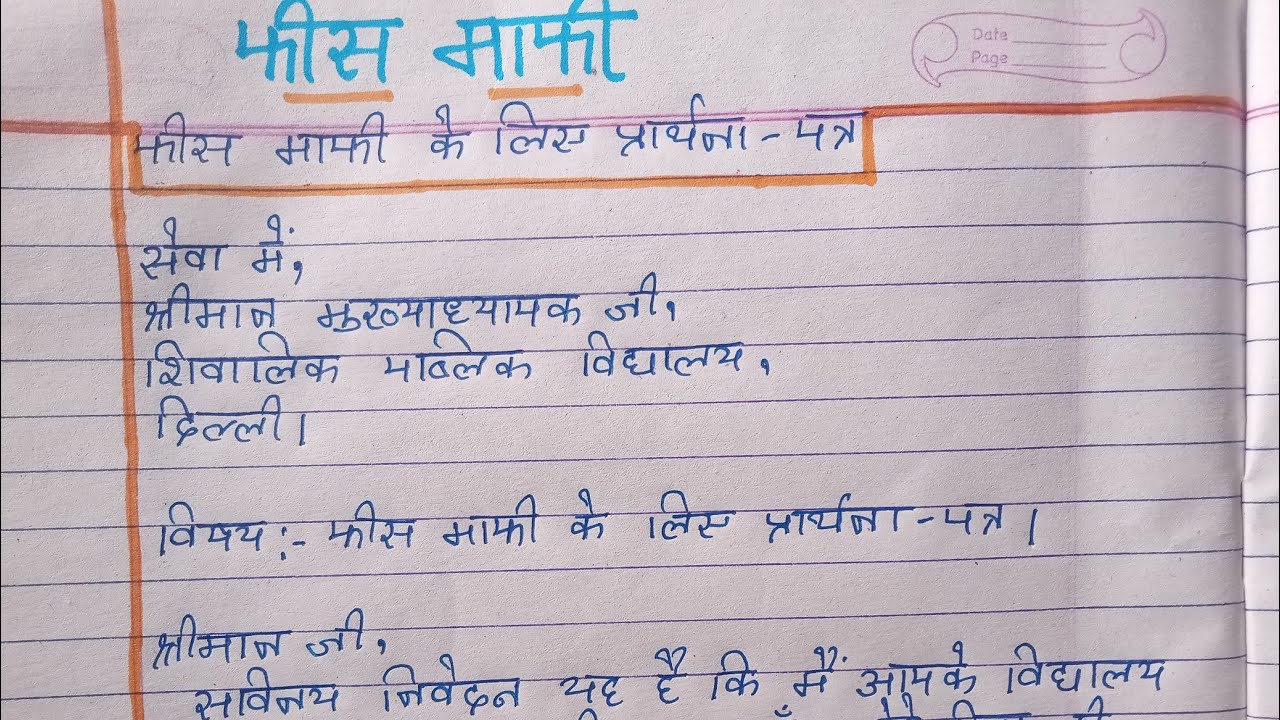 फीस माफी
Date
Page
फीस माफी के लिए प्रार्थना-पत्र
सेवा में,
श्रीमान मुख्याध्यापक जी,
शिवालिक पाब्लिक विद्यालय,
दिल्ली।
विषय:- फीस माफी के लिए प्रार्थना-पत्र।
श्रीमान जी,
सविनय निवेदन यह है कि मैं आपके विद्यालय